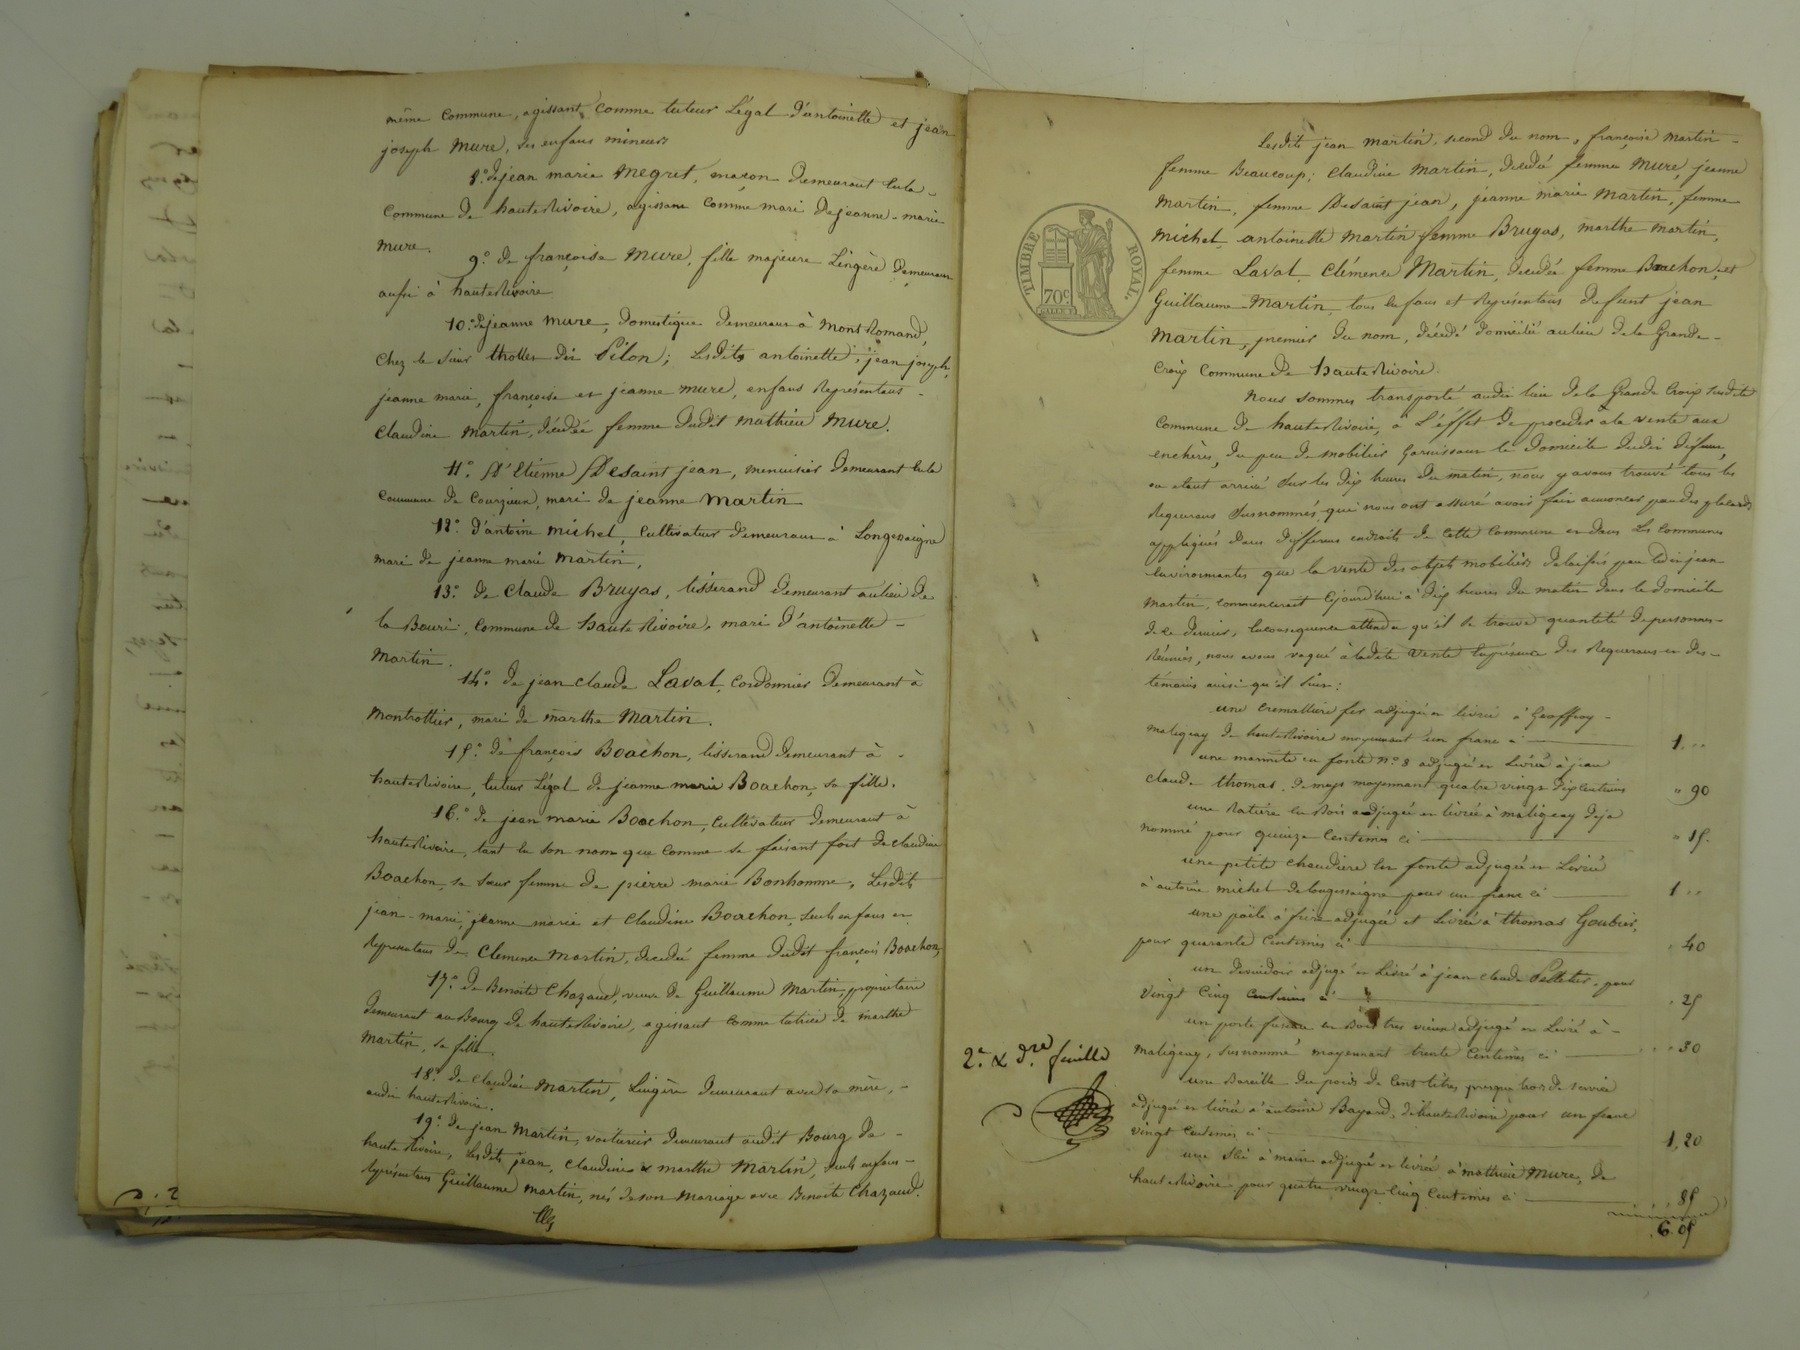 même commune, agissant comme tuteur Légal d'antoinette et jean
joseph Mure, ses enfans mineurs
8.° de jean marie Megret, maçon demeurant en la
commune de hauterivoire, agissant comme mari de jeanne-marie
Mure.
9.° de françoise Mure, fille majeure Lingère demeurant
aussi à hauterivoire
10.° de jeanne Mure, domestique demeurant à Montromand,
chez le sieur tholles dit Pilon; Lesdits antoinette, jean joseph,
jeanne marie, françoise et jeanne Mure, enfans Représentans
claudine Martin, décédée femme dudit Mathieu Mure.
11.° d'Etienne Desaint jean, menuisier demeurant en la
commune de Courzieu, mari de jeanne Martin
12.° d'antoine Michel, cultivateur demeurant à Longessaigne
mari de jeanne marie Martin,
13.° de Claude Bruyas, tisserand demeurant au lieu de
la Bouri, commune de haute Rivoire, mari d'antoinette
Martin.
14.° de jean claude Laval, Cordonnier demeurant à
Montrottier, mari de marthe Martin.
15.° de françois Boachon, tisserand demeurant à
hauterivoire, tuteur Légal de jeanne marie Boachon, sa fille.
16.° de jean marie Boachon, cultivateur demeurant à
hauterivoire, tant en son nom que comme se faisant fort de claudine
Boachon, sa sœur femme de pierre marie Bonhomme, Lesdits
jean-marie, jeanne marie et Claudine Boachon, seuls enfans et
Représentans de Clemence Martin, décédée femme dudit françois Boachon,
17.° de Benoite Chazaud, veuve de Guillaume Martin, propriétaire
demeurant au Bourg de hauterivoire, agissant comme tutrice de marthe
Martin, sa fille.
18.° de Claudine Martin, Lingère demeurant avec sa mère,
audit hauterivoire.
19.° de jean Martin, voiturier demeurant audit Bourg de
haute Rivoire, Lesdits jean, Claudine & marthe Martin, seuls enfans
Représentans Guillaume Martin, nés de son mariage avec Benoite Chazaud.
Lesdits jean Martin, second du nom, françoise Martin
femme Beaucoup; Claudine Martin, décédée femme Mure, jeanne
Martin, femme Desaint jean, jeanne marie Martin, femme
Michel, antoinette Martin femme Bruyas, marthe Martin,
femme Laval, Clémence Martin, décédée femme Boachon, et
Guillaume Martin, tous enfans et Représentans defunt jean
Martin, premier du nom, décédé domicilié au lieu de la Grande
Croix commune de hauterivoire.
Nous sommes transporté audit lieu de la Grande Croix susdite
commune de hauterivoire, à L'éffet de proceder à la vente aux
enchères, du peu de mobilier garnissant le domicile dudit défunt,
ou étant arrivé sur les dix heures du matin, nous y avons trouvé tous les
Requerans susnommés, qui nous ont assuré avoir fait annoncer par des placards
appliqués dans differens endroits de cette commune et dans Les communes
environnantes que la vente des objets mobiliers delaissés par ledit jean
Martin, commencerait cejourd'hui à dix heures du matin dans le domicile
de ce dernier, Enconséquence attendu qu'il se trouve quantité de personnes
Réunies, nous avons vaqué à ladite vente enprésence des Requerans et des
témoins ainsi qu'il suit:
une cremallière fer adjugée et livrée à Geoffroy
Matigny de hauterivoire moyennant un franc ci 1. "
une marmite en fonte n.° 8 adjugée et Livrée à jean
claude thomas, de mays moyennant quatre vingt dix centimes " 90
une Ratière en Bois adjugée et livrée à matigny déja
nommé pour quinze centimes ci " 15.
une petite chaudière en fonte adjugée et Livrée
à antoine michel de longessaigne pour un franc ci 1 "
une poële à frire adjugée et Livrée à thomas Goubier,
pour quarante centimes ci " 40
un devuidoir adjugé et Livré à jean claude Pelletier, pour
vingt cinq centimes ci " 25
un porte fuseau en Bois tres vieux adjugé et Livré à
Matigny, susnommé moyennant trente centimes ci " 30
une Bareille du poids de cent litres presque hors de service
adjugée et livrée à antoine Bayard, de hauterivoire pour un franc
vingt centimes ci 1. 20
une scie à main adjugée et livrée à mathieu Mure, de
hauterivoire pour quatre vingt cinq centimes ci " 85
6. 05
TIMBRE ROYAL.
70 c.
2.e & d.re feuille